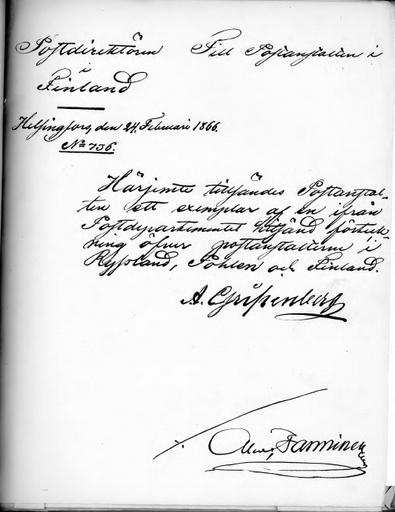 Postdirektören Till Postanstalten i
i
Finland
Helsingfors, den 24 Februari 1866.
No 736.
Härjemte tillsändes Postanstal-
ten ett exemplar af en ifrån
Postdepartementet utsänd förteck-
ning öfver postanstalterne i
Ryssland, Pohlen och Finland.
A. Gripenberg
Tanninen